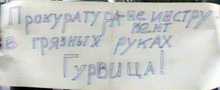 Прокуратура-не инстру
мент
в грязных руках
Гурвица!